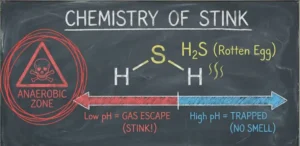 CHEMISTRY OF STINK
ANAEROBIC
ZONE
S
H H
H₂S (Rotten Egg)
Low pH = GAS ESCAPE
(STINK!)
High pH = TRAPPED
(NO SMELL)